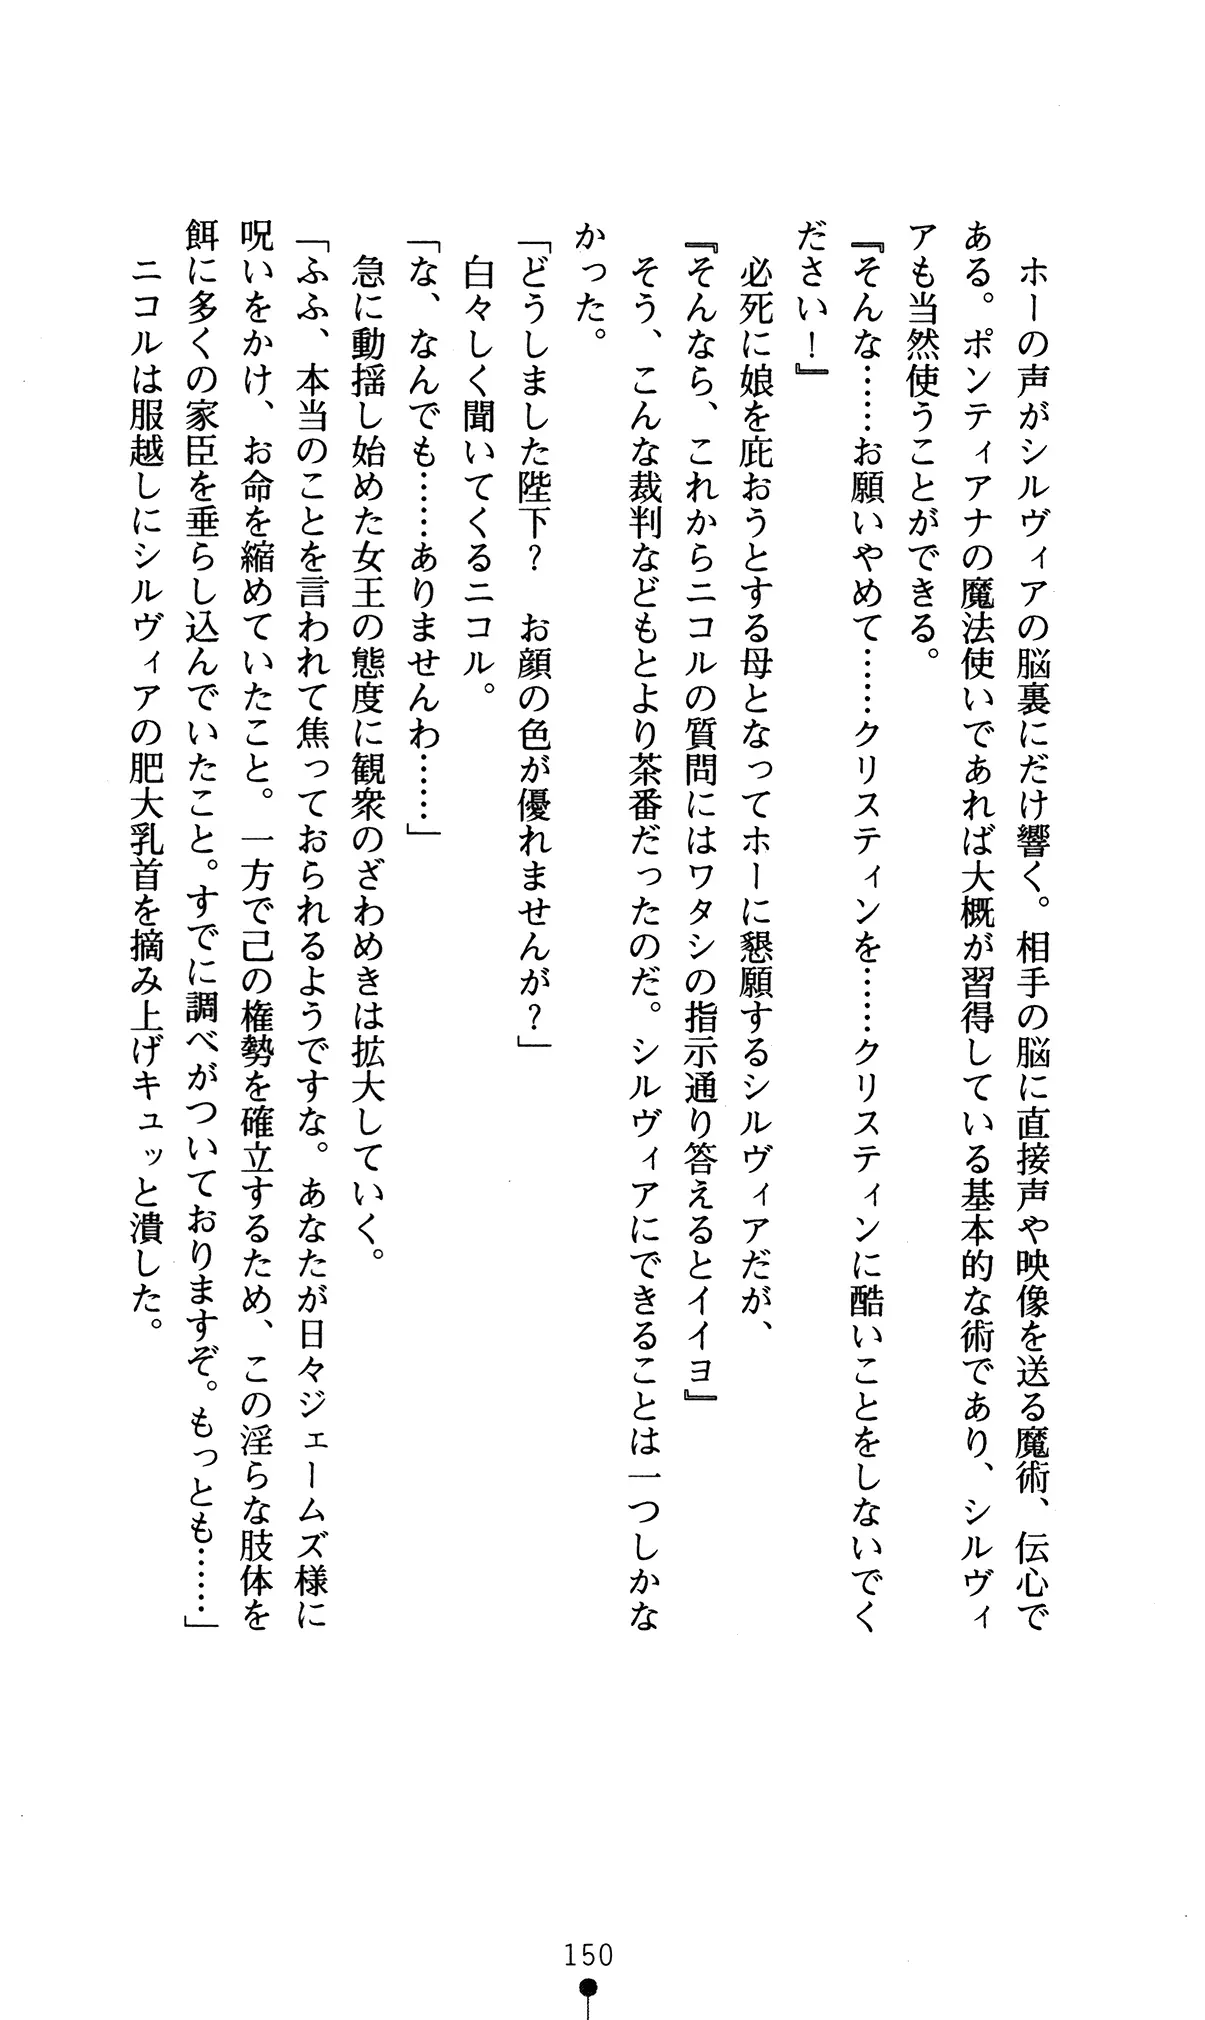 ホーの声がシルヴィアの脳裏にだけ響く。相手の脳に直接声や映像を送る魔術、伝心で
ある。ポンティアナの魔法使いであれば大概が習得している基本的な術であり、シルヴィ
アも当然使うことができる。
『そんな……お願いやめて……クリスティンを……クリスティンに酷いことをしないでく
ださい！』
必死に娘を庇おうとする母となってホーに懇願するシルヴィアだが、
『そんなら、これからニコルの質問にはワタシの指示通り答えるとイイヨ』
そう、こんな裁判などもとより茶番だったのだ。シルヴィアにできることは一つしかな
かった。
「どうしました陛下？　お顔の色が優れませんが？」
白々しく聞いてくるニコル。
「な、なんでも……ありませんわ……」
急に動揺し始めた女王の態度に観衆のざわめきは拡大していく。
「ふふ、本当のことを言われて焦っておられるようですな。あなたが日々ジェームズ様に
呪いをかけ、お命を縮めていたこと。一方で己の権勢を確立するため、この淫らな肢体を
餌に多くの家臣を垂らし込んでいたこと。すでに調べがついておりますぞ。もっとも……」
ニコルは服越しにシルヴィアの肥大乳首を摘み上げキュッと潰した。
150